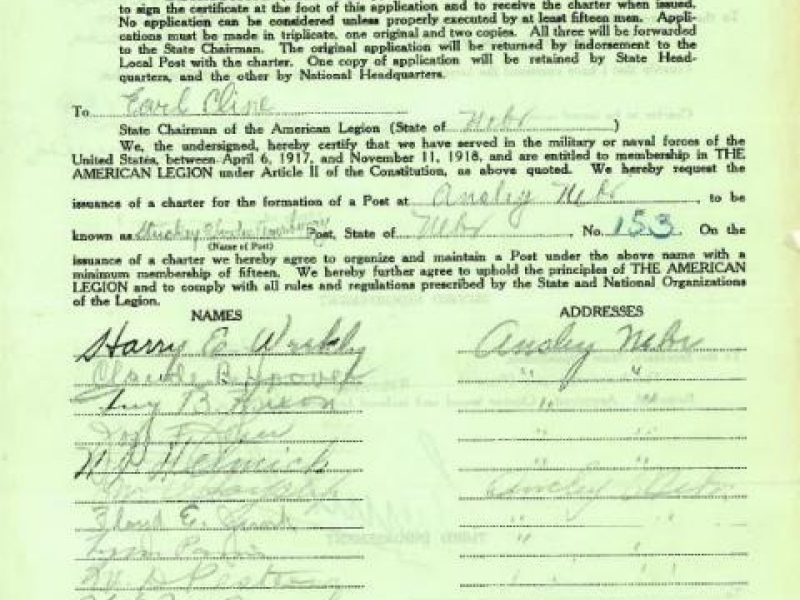 to sign the certificate at the foot of this application and to receive the charter when issued.
No application can be considered unless properly executed by at least fifteen men. Appli-
cations must be made in triplicate, one original and two copies. All three will be forwarded
to the State Chairman. The original application will be returned by indorsement to the
Local Post with the charter. One copy of application will be retained by State Head-
quarters, and the other by National Headquarters.
To Earl Cline
State Chairman of the American Legion (State of Nebr )
We, the undersigned, hereby certify that we have served in the military or naval forces of the
United States, between April 6, 1917, and November 11, 1918, and are entitled to membership in THE
AMERICAN LEGION under Article II of the Constitution, as above quoted. We hereby request the
issuance of a charter for the formation of a Post at Ansley Nebr , to be
known as Post, State of Nebr , No. 153. On the
(Name of Post)
issuance of a charter we hereby agree to organize and maintain a Post under the above name with a
minimum membership of fifteen. We hereby further agree to uphold the principles of THE AMERICAN
LEGION and to comply with all rules and regulations prescribed by the State and National Organizations
of the Legion.
NAMES ADDRESSES
Harry E Ansley Nebr
Claude " "
Guy B " "
" "
Ansley Nebr
Floyd E. " "
" "